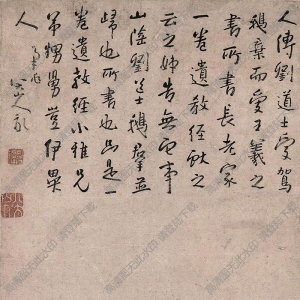 人傳道士愛駕
鵝棄而愛王羲之
書所書長老家
一卷遺教經獻之
云之姊告無它事
山陰劉道士鵝群並
歸也所書也只是一
卷遺教經小雅兄
弟甥舅豈伊異
人
八大山人